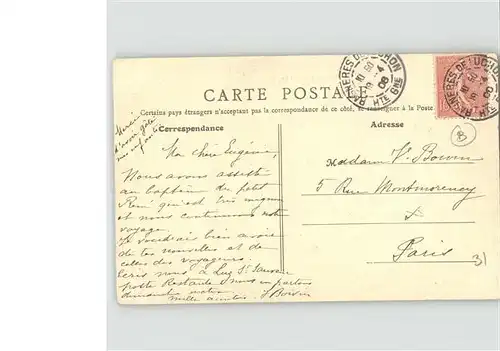 BAGNÈRES DE LUCHON
Hte GNE
BAGNÈRES DE LUCHON
Hte GNE
CARTE POSTALE
Certains pays étrangers n'acceptant pas la correspondance de ce côté, se renseigner à la Poste
Correspondance
Adresse
B
Merci
d'avoir gâté
Ma chère Eugénie,
Nous avons assisté
au baptême du petit
René qui est très mignon
et nous continuons notre
voyage.
Je voudrais bien avoir
de tes nouvelles et de
celles des voyageurs.
Ecris nous à Luz St. Sauveur
poste Restante nous en partons
dimanche matin
mille amitiés. J Boivin
Madame V. Boivin
5 Rue Montmorency
Paris
31